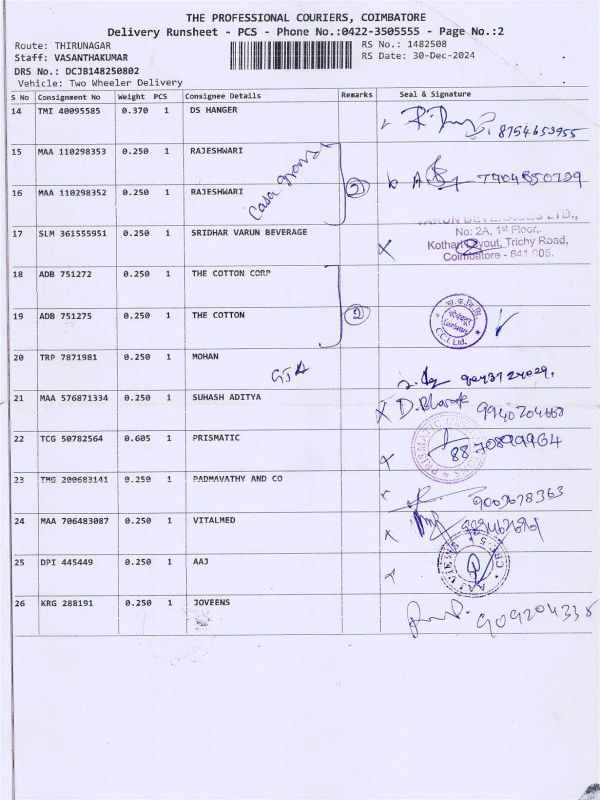 THE PROFESSIONAL COURIERS, COIMBATORE
Delivery Runsheet - PCS - Phone No.:0422-3505555 - Page No.:2
Route: THIRUNAGAR RS No.: 1482508
Staff: VASANTHAKUMAR RS Date: 30-Dec-2024
DRS No.: DCJB148250802
Vehicle: Two Wheeler Delivery
S No Consignment No Weight PCS Consignee Details Remarks Seal & Signature
14 TMI 40095585 0.370 1 DS HANGER 8754653955
15 MAA 110298353 0.250 1 RAJESHWARI
2
16 MAA 110298352 0.250 1 RAJESHWARI
17 SLM 361555951 0.250 1 SRIDHAR VARUN BEVERAGE
VARUN BEVERAGES LTD.,
No: 2A, 1st Floor,
Kothari Layout, Trichy Road,
Coimbatore - 641 005.
18 ADB 751272 0.250 1 THE COTTON CORP
2
19 ADB 751275 0.250 1 THE COTTON
CCI Ltd.
20 TRP 7871981 0.250 1 MOHAN
21 MAA 576871334 0.250 1 SUHASH ADITYA
22 TCG 50782564 0.605 1 PRISMATIC
PRISMATIC
23 TMG 200683141 0.250 1 PADMAVATHY AND CO
24 MAA 706483087 0.250 1 VITALMED
25 DPI 445449 0.250 1 AAJ
26 KRG 288191 0.250 1 JOVEENS